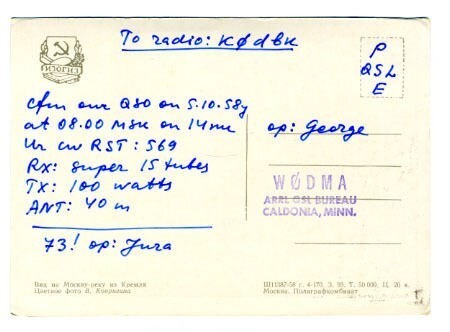 To radio: KØdbk
ИЗОГИЗ
P
QSL
E
Cfm our QSO on 5.10.58y
at 08.00 MSK on 14mc
Ur cw RST: 569
RX: super 15 tubes
TX: 100 watts
ANT: 40 m
73! op: Jura
op: George
WØDMA
ARRL QSL BUREAU
CALDONIA, MINN.
Вид на Москву-реку из Кремля
Цветное фото В. Ковригина
Ш11387-58 г. 4-170. З. 95. Т. 50 000. Ц. 20 к.
Москва. Полиграфкомбинат